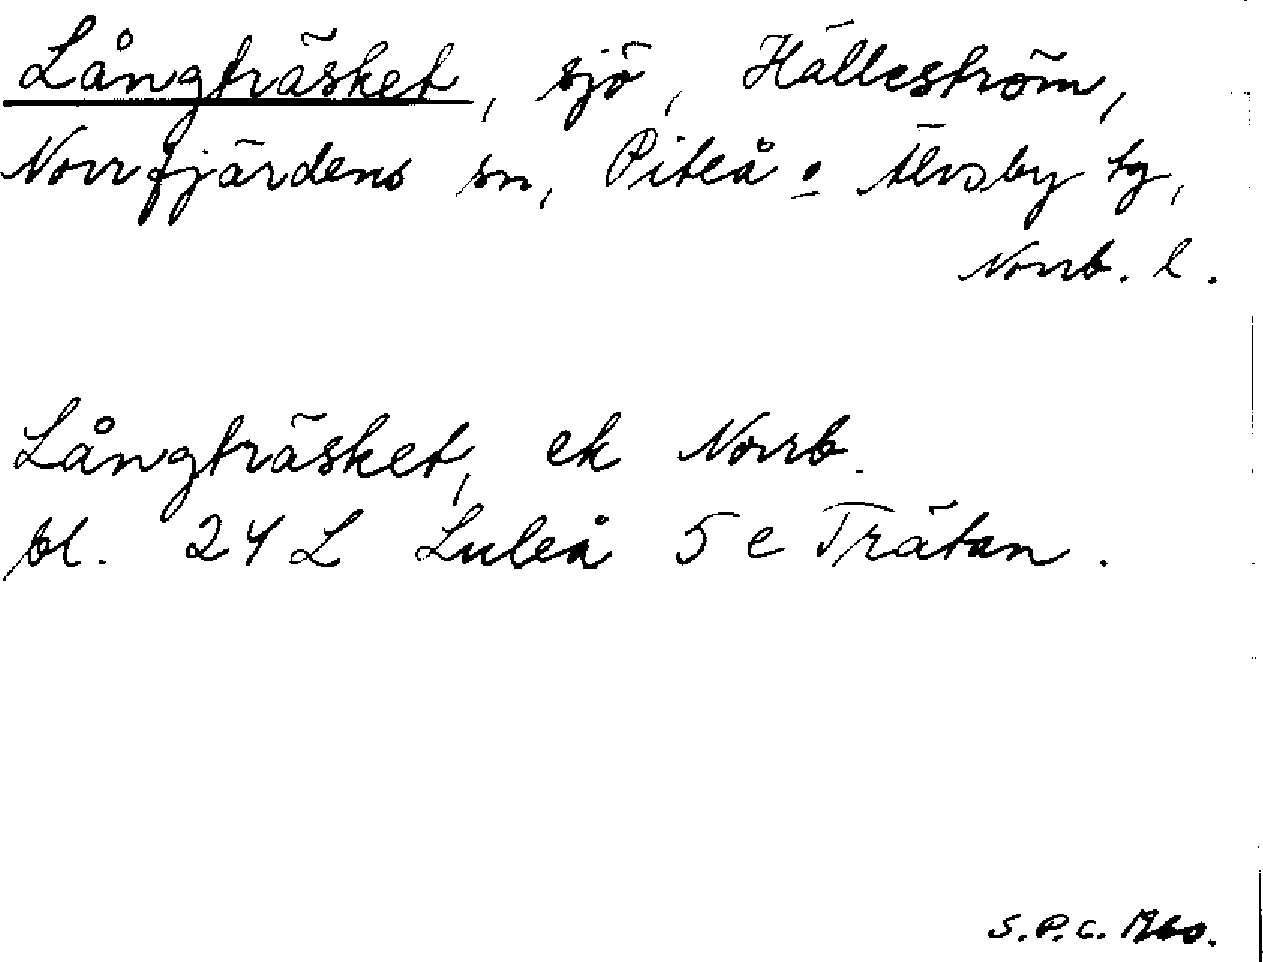 Långträsket, sjö, Hälleström,
Norrfjärdens sn, Piteå o Älvsby tg,
Norrb. l.
Långträsket, ek Norrb.
bl. 24 L Luleå 5 e Trätan.
S.P.C.